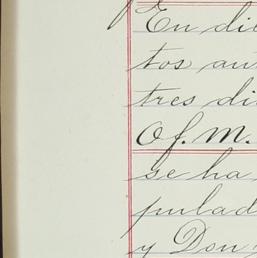 En die
tos au
tres di
Of. M.
se ha
pulad
y Don